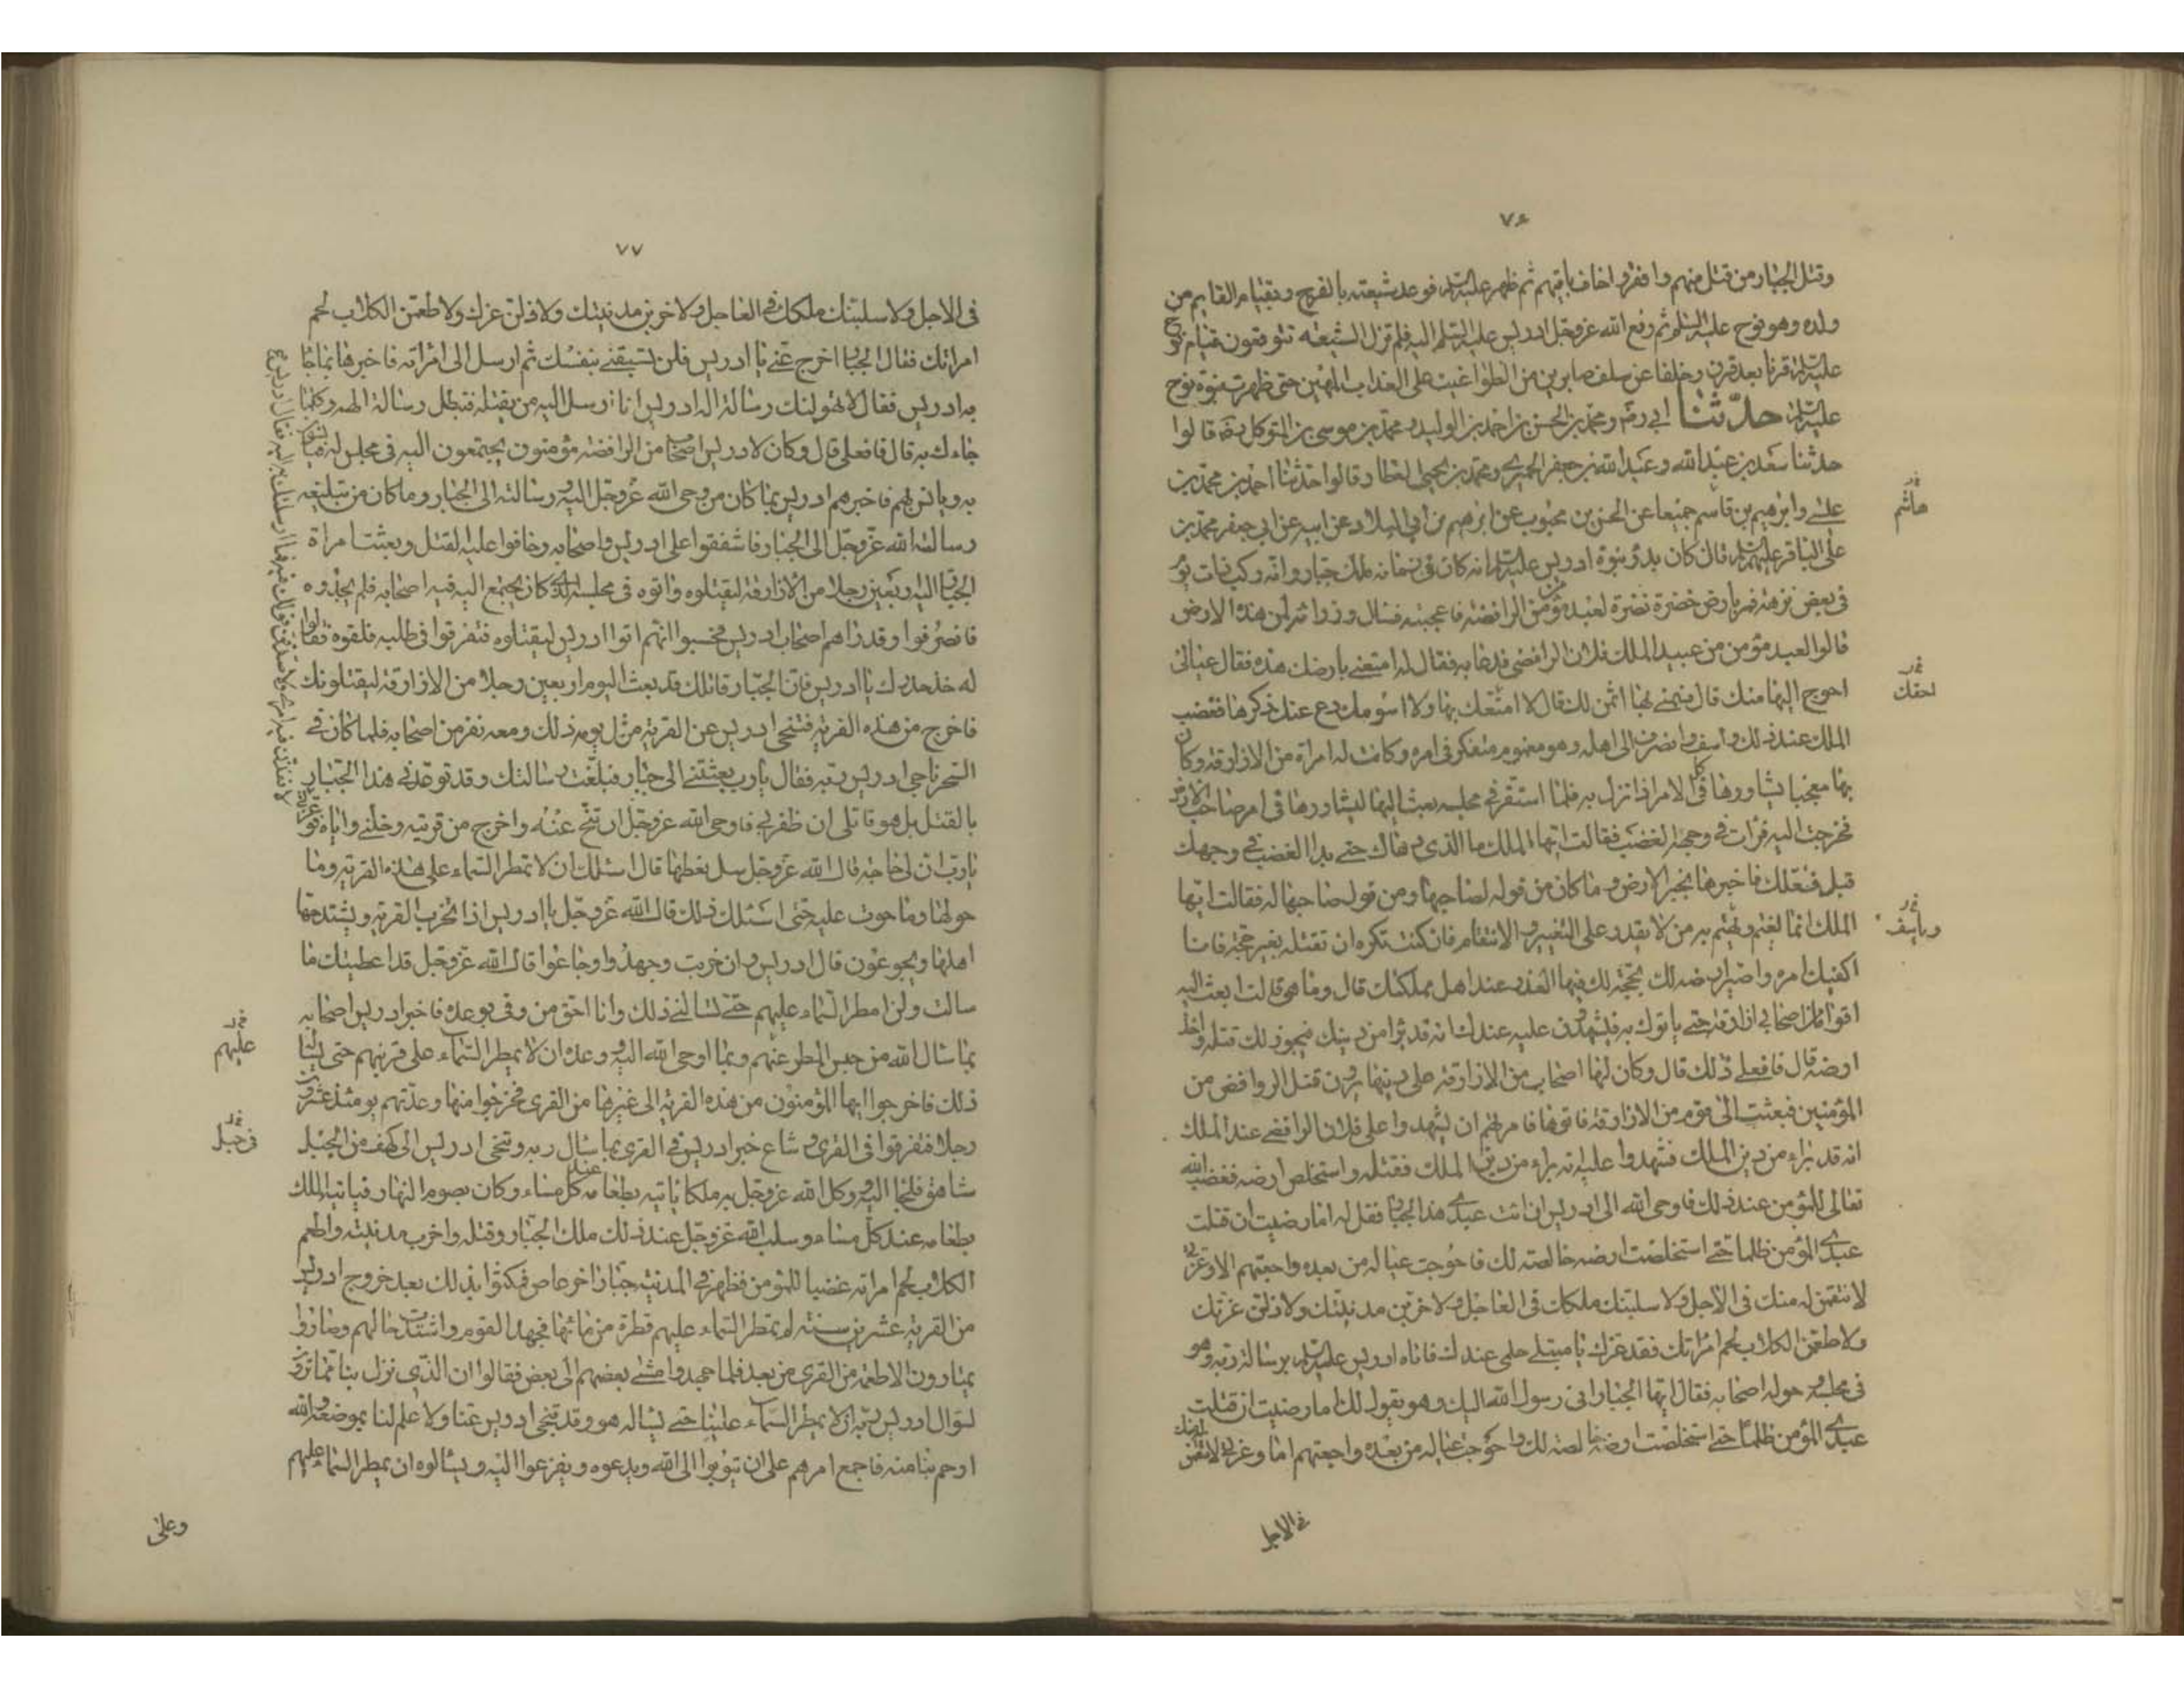 ٧٦
وقتل الجبار من قتل منهم وافقر واخاف باقيهم ثم ظهر عليه السلم فوعد شيعته بالفرج وبقيام القايم من
ولده وهو نوح عليه السلم ثم رفع الله عزوجل ادريس عليه السلم اليه فلم تزل الشيعه تتوقعون قيام نوح
عليه السلم قرنا بعد قرن وخلفا عن سلف صابرين من الطواغيت على العذاب المهين حتى ظهرت نبوة نوح
عليه السلم حدثنا ابي ره ومحمد بن الحسن بن احمد بن الوليد ومحمد بن موسى بن المتوكل قالوا
حدثنا سعد بن عبد الله وعبد الله بن جعفر الحميري ومحمد بن يحيى العطار قالوا حدثنا احمد بن محمد بن
هاشم
علي وابرهيم بن قاسم جميعا عن الحسن بن محبوب عن ابرهيم بن ابي البلاد عن ابيه عن ابي جعفر محمد بن
على الباقر عليهم السلم قال كان بدؤ نبوة ادريس عليه السلم انه كان في زمانه ملك جبار وانه ركب ذات يوم
في بعض نزهته فمر بارض خضرة نضرة لعبد مؤمن من الرافضة فاعجبته فسال وزرائه لمن هذه الارض
قالوا لعبد مؤمن من عبيد الملك فلان الرافضي فدعا به فقال له امتعني بارضك هذه فقال عيالى
احقك
احوج اليها منك قال فسمني بها اثمن لك قال لا امتعك بها ولا اسومك دع عنك ذكرها فغضب
الملك عند ذلك واسف وانصرف الى اهله وهو مغموم متفكر في امره وكانت له امراة من الازارقة وكان
بها معجبا يشاورها في الامر اذا نزل به فلما استقر في مجلسه بعث اليها ليشاورها في امر صاحب الارض
فخرجت اليه فرات في وجهه الغضب فقالت ايها الملك ما الذي دهاك حتى بدا الغضب في وجهك
قبل فعلك فاخبرها بخبر الارض وما كان من قوله لصاحبها ومن قول صاحبها له فقالت ايها
ويأسف
الملك انما يغتم ويهتم به من لا يقدر على التغيير والانتقام فان كنت تكره ان تقتله بغير حجة فانا
اكفيك امره واصير ارضه لك بحجة لك فيها العذر عند اهل مملكتك قال وما هي قالت ابعث اليه
اقواما من اصحابي ازارقة حتى ياتوك به فيشهدون عليه عندك انه قد برا من دينك فيجوز لك قتله واخذ
ارضه قال فافعلى ذلك قال وكان لها اصحاب من الازارقة على دينها يرون قتل الروافض من
المؤمنين فبعثت الى قوم من الازارقة فاتوها فامرتهم ان يشهدوا على فلان الرافضي عند الملك
انه قد براء من دين الملك فشهدوا عليه انه براء من دين الملك فقتله واستخلص ارضه فغضب الله
تعالى للمؤمن عند ذلك فاوحى الله الى ادريس ان ائت عبدي هذا الجبار فقل له اما رضيت ان قتلت
عبدي المؤمن ظلما حتى استخلصت ارضه خالصة لك فاحوجت عياله من بعده واجعتهم الا وعزتي
لانتقمن له منك في الاجل ولاسلبنك ملكك في العاجل ولاخربن مدينتك ولاذلن عزتك
ولاطعمن الكلاب لحم امراتك فقد غرك يا مبتلي حلمي عندك فاتاه ادريس عليه السلم برسالة ربه وهو
في مجلسه وحوله اصحابه فقال ايها الجبار انى رسول الله اليك وهو يقول لك اما رضيت ان قتلت
عبدي المؤمن ظلما حتى استخلصت ارضه خالصة لك واحوجت عياله من بعده واجعتهم اما وعزتي لانتقمن لك منك
في الاجل
٧٧
في الاجل ولاسلبنك ملكك في العاجل ولاخربن مدينتك ولاذلن عزك ولاطعمن الكلاب لحم
امراتك فقال الجبار اخرج عني يا ادريس فلن تسبقني بنفسك ثم ارسل الى امراته فاخبرها بما جاء
به ادريس فقال لا يهولنك رسالة اله ادريس انا ارسل اليه من يقتله فتبطل رسالة الهه وكلما
جاءك به قال فافعلى قال وكان لادريس اصحاب من الرافضة مؤمنون يجتمعون اليه في مجلس له فيانسون
به ويانس بهم فاخبرهم ادريس بما كان من وحى الله عزوجل اليه ورسالته الى الجبار وما كان من تبليغه
رسالة الله عزوجل الى الجبار فاشفقوا على ادريس واصحابه وخافوا عليه القتل وبعثت امراة
الجبار اليه اربعين رجلا من الازارقة ليقتلوه فاتوه في مجلسه الذي كان يجتمع اليه فيه اصحابه فلم يجدوه
فانصرفوا وقد راهم اصحاب ادريس فحسبوا انهم اتوا ادريس ليقتلوه فتفرقوا في طلبه فلقوه فقالوا
له خذ حذرك يا ادريس فان الجبار قاتلك قد بعث اليوم اربعين رجلا من الازارقة ليقتلونك
فاخرج من هذه القرية فتنحى ادريس عن القرية من يومه ذلك ومعه نفر من اصحابه فلما كان في
السحر ناجى ادريس ربه فقال يا رب بعثتني الى جبار فبلغت رسالتك وقد توعدني هذا الجبار
بالقتل بل هو قاتلى ان ظفر بي فاوحى الله عزوجل ان تنح عنه واخرج من قريته وخلني واياه فوعزتي
لانفذن فيه امري ولاصدقن قولك فيه وما ارسلتك به اليه فقال ادريس ع
يا رب ان لي حاجة قال الله عزوجل سل تعطها قال اسئلك ان لا تمطر السماء على هذه القرية وما
حولها وما حوت عليه حتى اسئلك ذلك قال الله عزوجل يا ادريس اذا تخرب القرية ويشتد جهد
اهلها ويجوعون قال ادريس وان خربت وجهدوا وجاعوا قال الله عزوجل قد اعطيتك ما
سالت ولن امطر السماء عليهم حتى تسالني ذلك وانا احق من وفي بوعده فاخبر ادريس اصحابه
عليهم
بما سال الله من حبس المطر عنهم وبما اوحى الله اليه ووعده ان لا يمطر السماء على قريتهم حتى يساله
ذلك فاخرجوا ايها المؤمنون من هذه القرية الى غيرها من القرى فخرجوا منها وعدتهم يومئذ عشرون
في جبل
رجلا فتفرقوا في القرى وشاع خبر ادريس في القرى بما سال ربه وتنحى ادريس الى كهف من الجبل
شاهق فلجا اليه ووكل الله عزوجل به ملكا ياتيه بطعامه عند كل مساء وكان يصوم النهار فياتيه الملك
بطعامه عند كل مساء وسلب الله عزوجل عند ذلك ملك الجبار وقتله واخرب مدينته واطعم
الكلاب لحم امراته غضبا للمؤمن فظهر في المدينة جبار اخر عاص فمكثوا بذلك بعد خروج ادريس
من القرية عشرين سنة لم تمطر السماء عليهم قطرة من مائها فجهد القوم واشتدت حالهم وصاروا
يمتارون الاطعمة من القرى من بعد فلما جهدوا مشى بعضهم الى بعض فقالوا ان الذي نزل بنا مما ترون
لسؤال ادريس ربه ان لا يمطر السماء علينا حتى يساله هو وقد تنحى ادريس عنا ولا علم لنا بموضعه والله
ارحم بنا منه فاجمع امرهم على ان يتوبوا الى الله ويدعوه ويفزعوا اليه ويسالوه ان يمطر السماء عليهم
وعلى